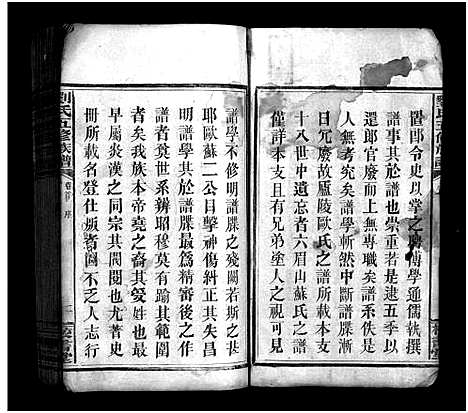 置郎令史以掌之聘博學通儒執撰
其事於譜也崇重若是逮五季以
還郎官廢而上無專職矣譜系佚
而下罕完帙矣譜學漸然中斷譜牒漸
日冗廢故廬陵歐氏之譜所載本支
十八世中遺忘者六眉山蘇氏之譜
僅詳本支且有兄弟塗人之視可見
譜學不修明譜牒之殘闕若斯之甚
耶歐蘇二公目擊神傷糾正其失昌
明譜學其於譜牒最爲精審後之作
者奠世系辨昭穆莫有踰其範圍
者矣我族本帝堯之裔其受姓也
早屬炎漢之同宗其興尤著史
冊所載名登仕版者固不乏人志行
劉氏五修族譜
卷首 序